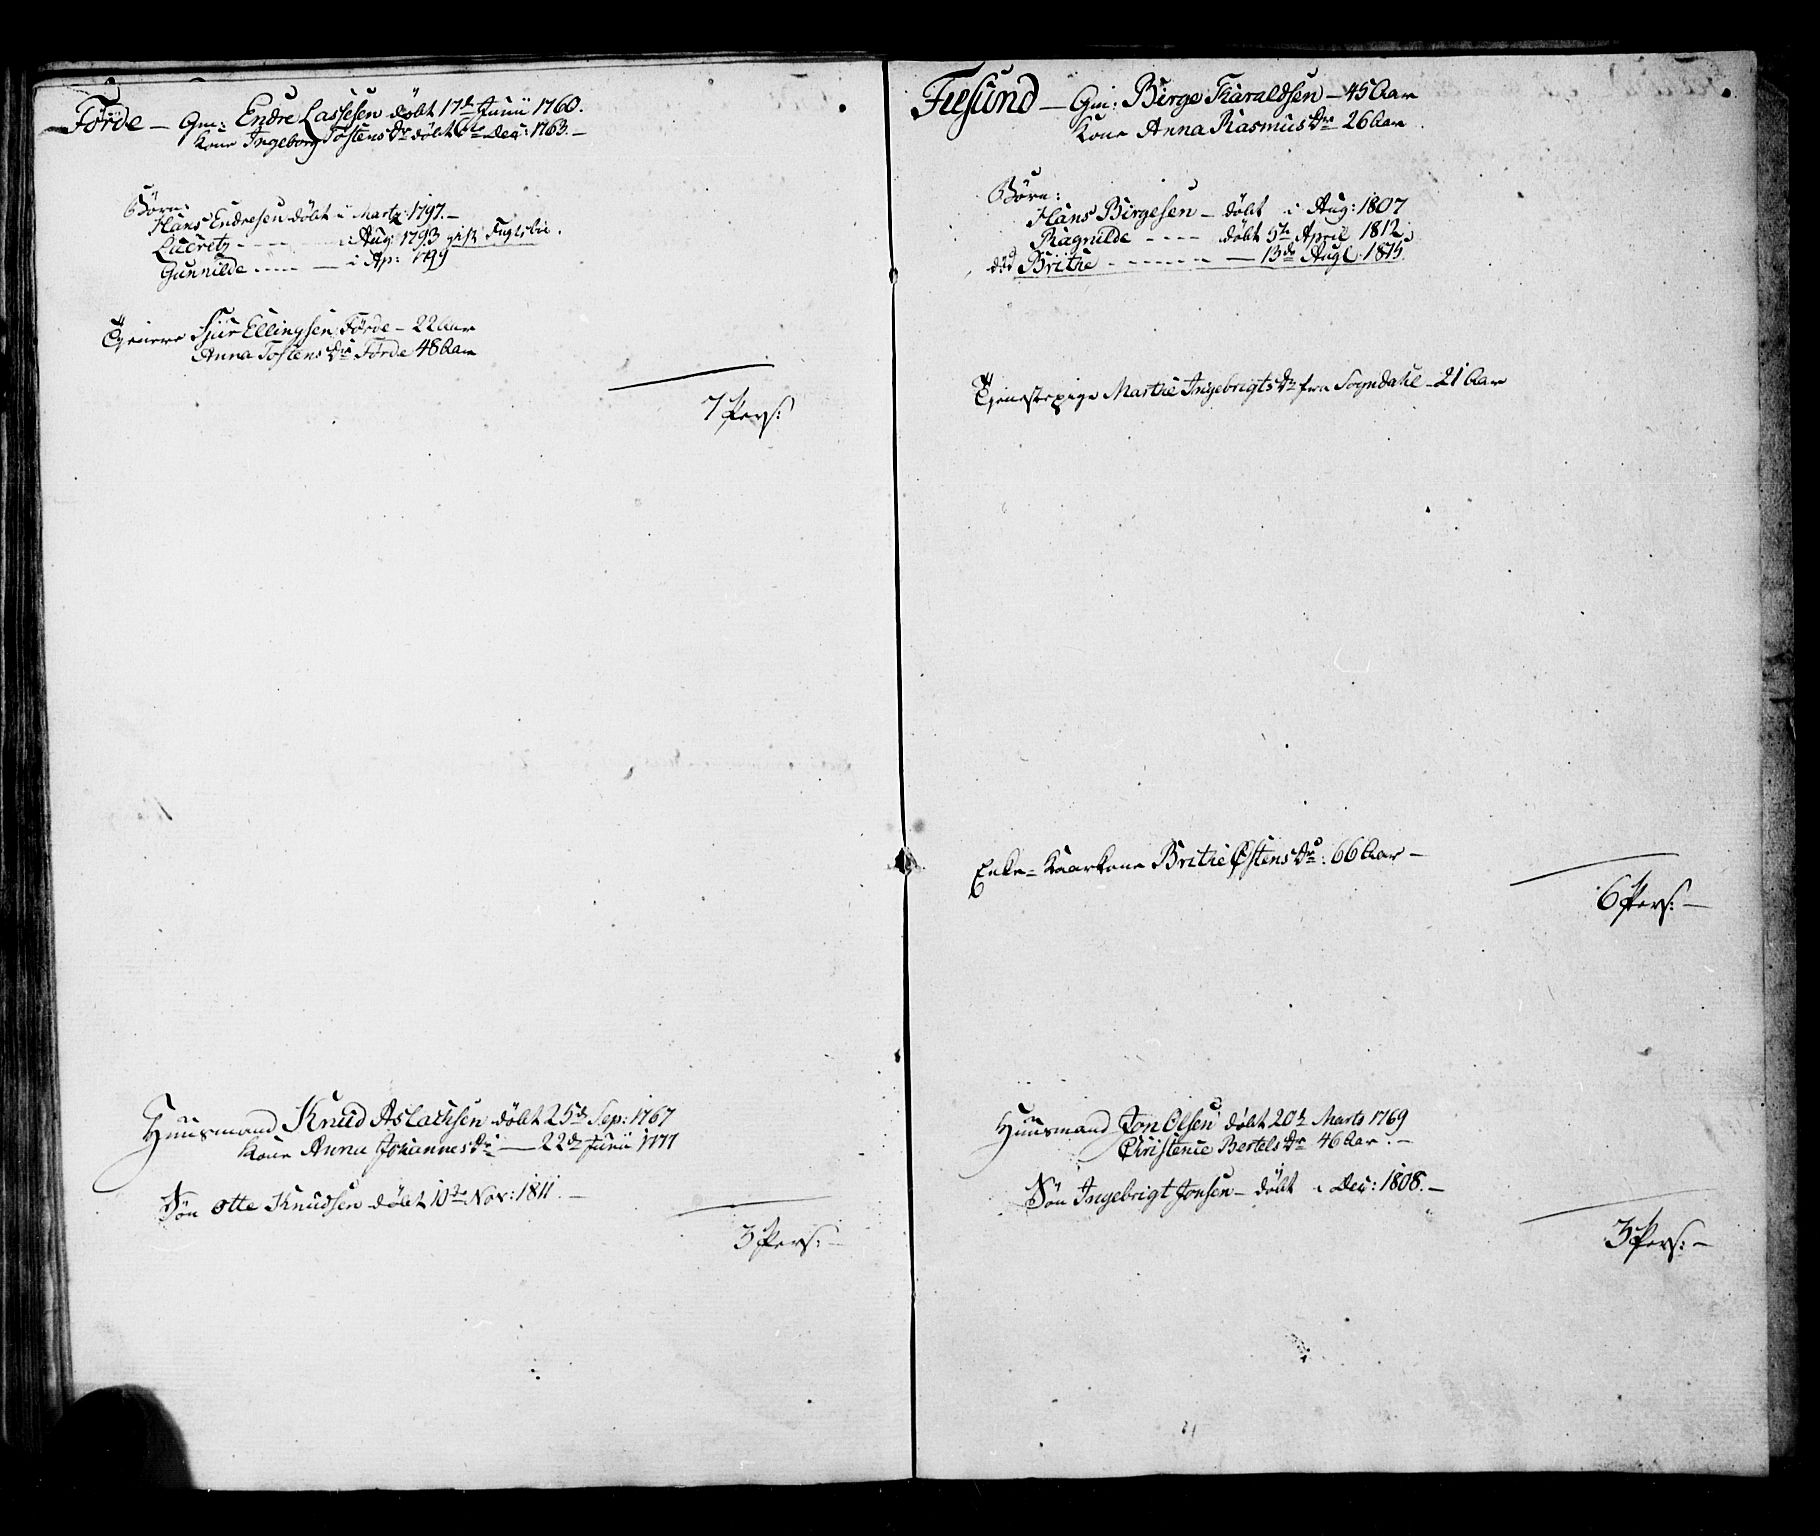 Förde – Gm: Endre Lassesen döbt 17d Junii 1760.
Kone Ingeborg Tostens Dr döbt Dec: 1763. –
Börn:
Hans Endresen döbt i Martz: 1797. –
Lucretz - - - - i Aug 1793 gift
Gunnilde - - - – i Ap: 1799
Tjenere Sjur Ellingsen Förde – 22 Aar
Anna Tostens Dr Förde 48 Aar
7 Pers:
Huusmand Knud Aslachsen döbt 25d Sep: 1767
Kone Anna Johannes Dr – 22de Junii 1777
Sön Otte Knudsen döbt 10de Nov: 1811. –
3 Pers: –
Fiesund – Gm: Birge Haraldsen – 45 Aar
Kone Anna Rasmus Dr 26 Aar
Börn:
Hans Birgesen – döbt i Aug: 1807
Ragnilde - - - - döbt 5te April 1812.
död Brithe - - - - - – 13de Aug 1815.
Tjenestepige Marthe Ingebrigts Dr fra Sogndahl – 21 Aar
Enke = Kaarkone Brithe Østens Dr: 66 Aar –
6 Pers: –
Huusmand Jon Olsen döbt 20d Marts 1769
Christence Bertels Dr 46 Aar. –
Sön Ingebrigt Jonsen – döbt i Dec: 1808. –
3 Pers: –